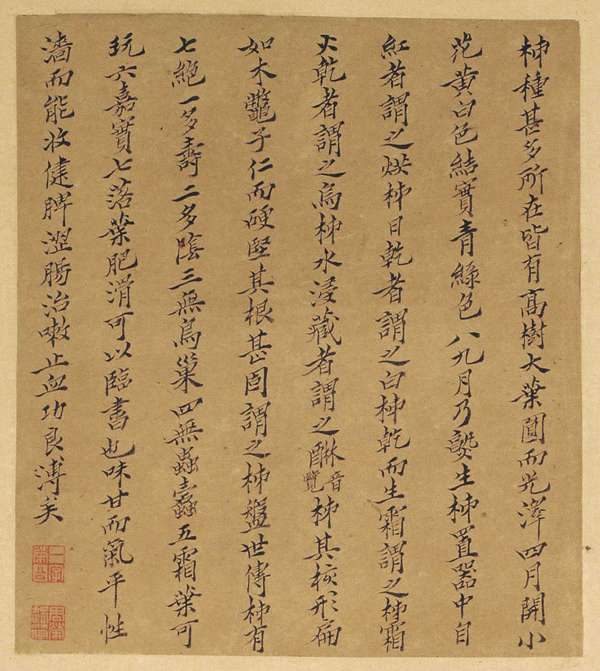 柿種甚多所在皆有高樹大葉圓而光澤四月開小
花黃白色結實青綠色八九月乃熟生柿置器中自
紅者謂之烘柿日乾者謂之白柿乾而生霜謂之柿霜
火乾者謂之烏柿水浸藏者謂之醂音覽柿其核形扁
如木鼈子仁而硬堅其根甚固謂之柿盤世傳柿有
七絕一多壽二多陰三無鳥巢四無蟲蠹五霜葉可
玩六嘉實七落葉肥滑可以臨書也味甘而氣平性
濇而能收健脾澀腸治嗽止血功良溥矣